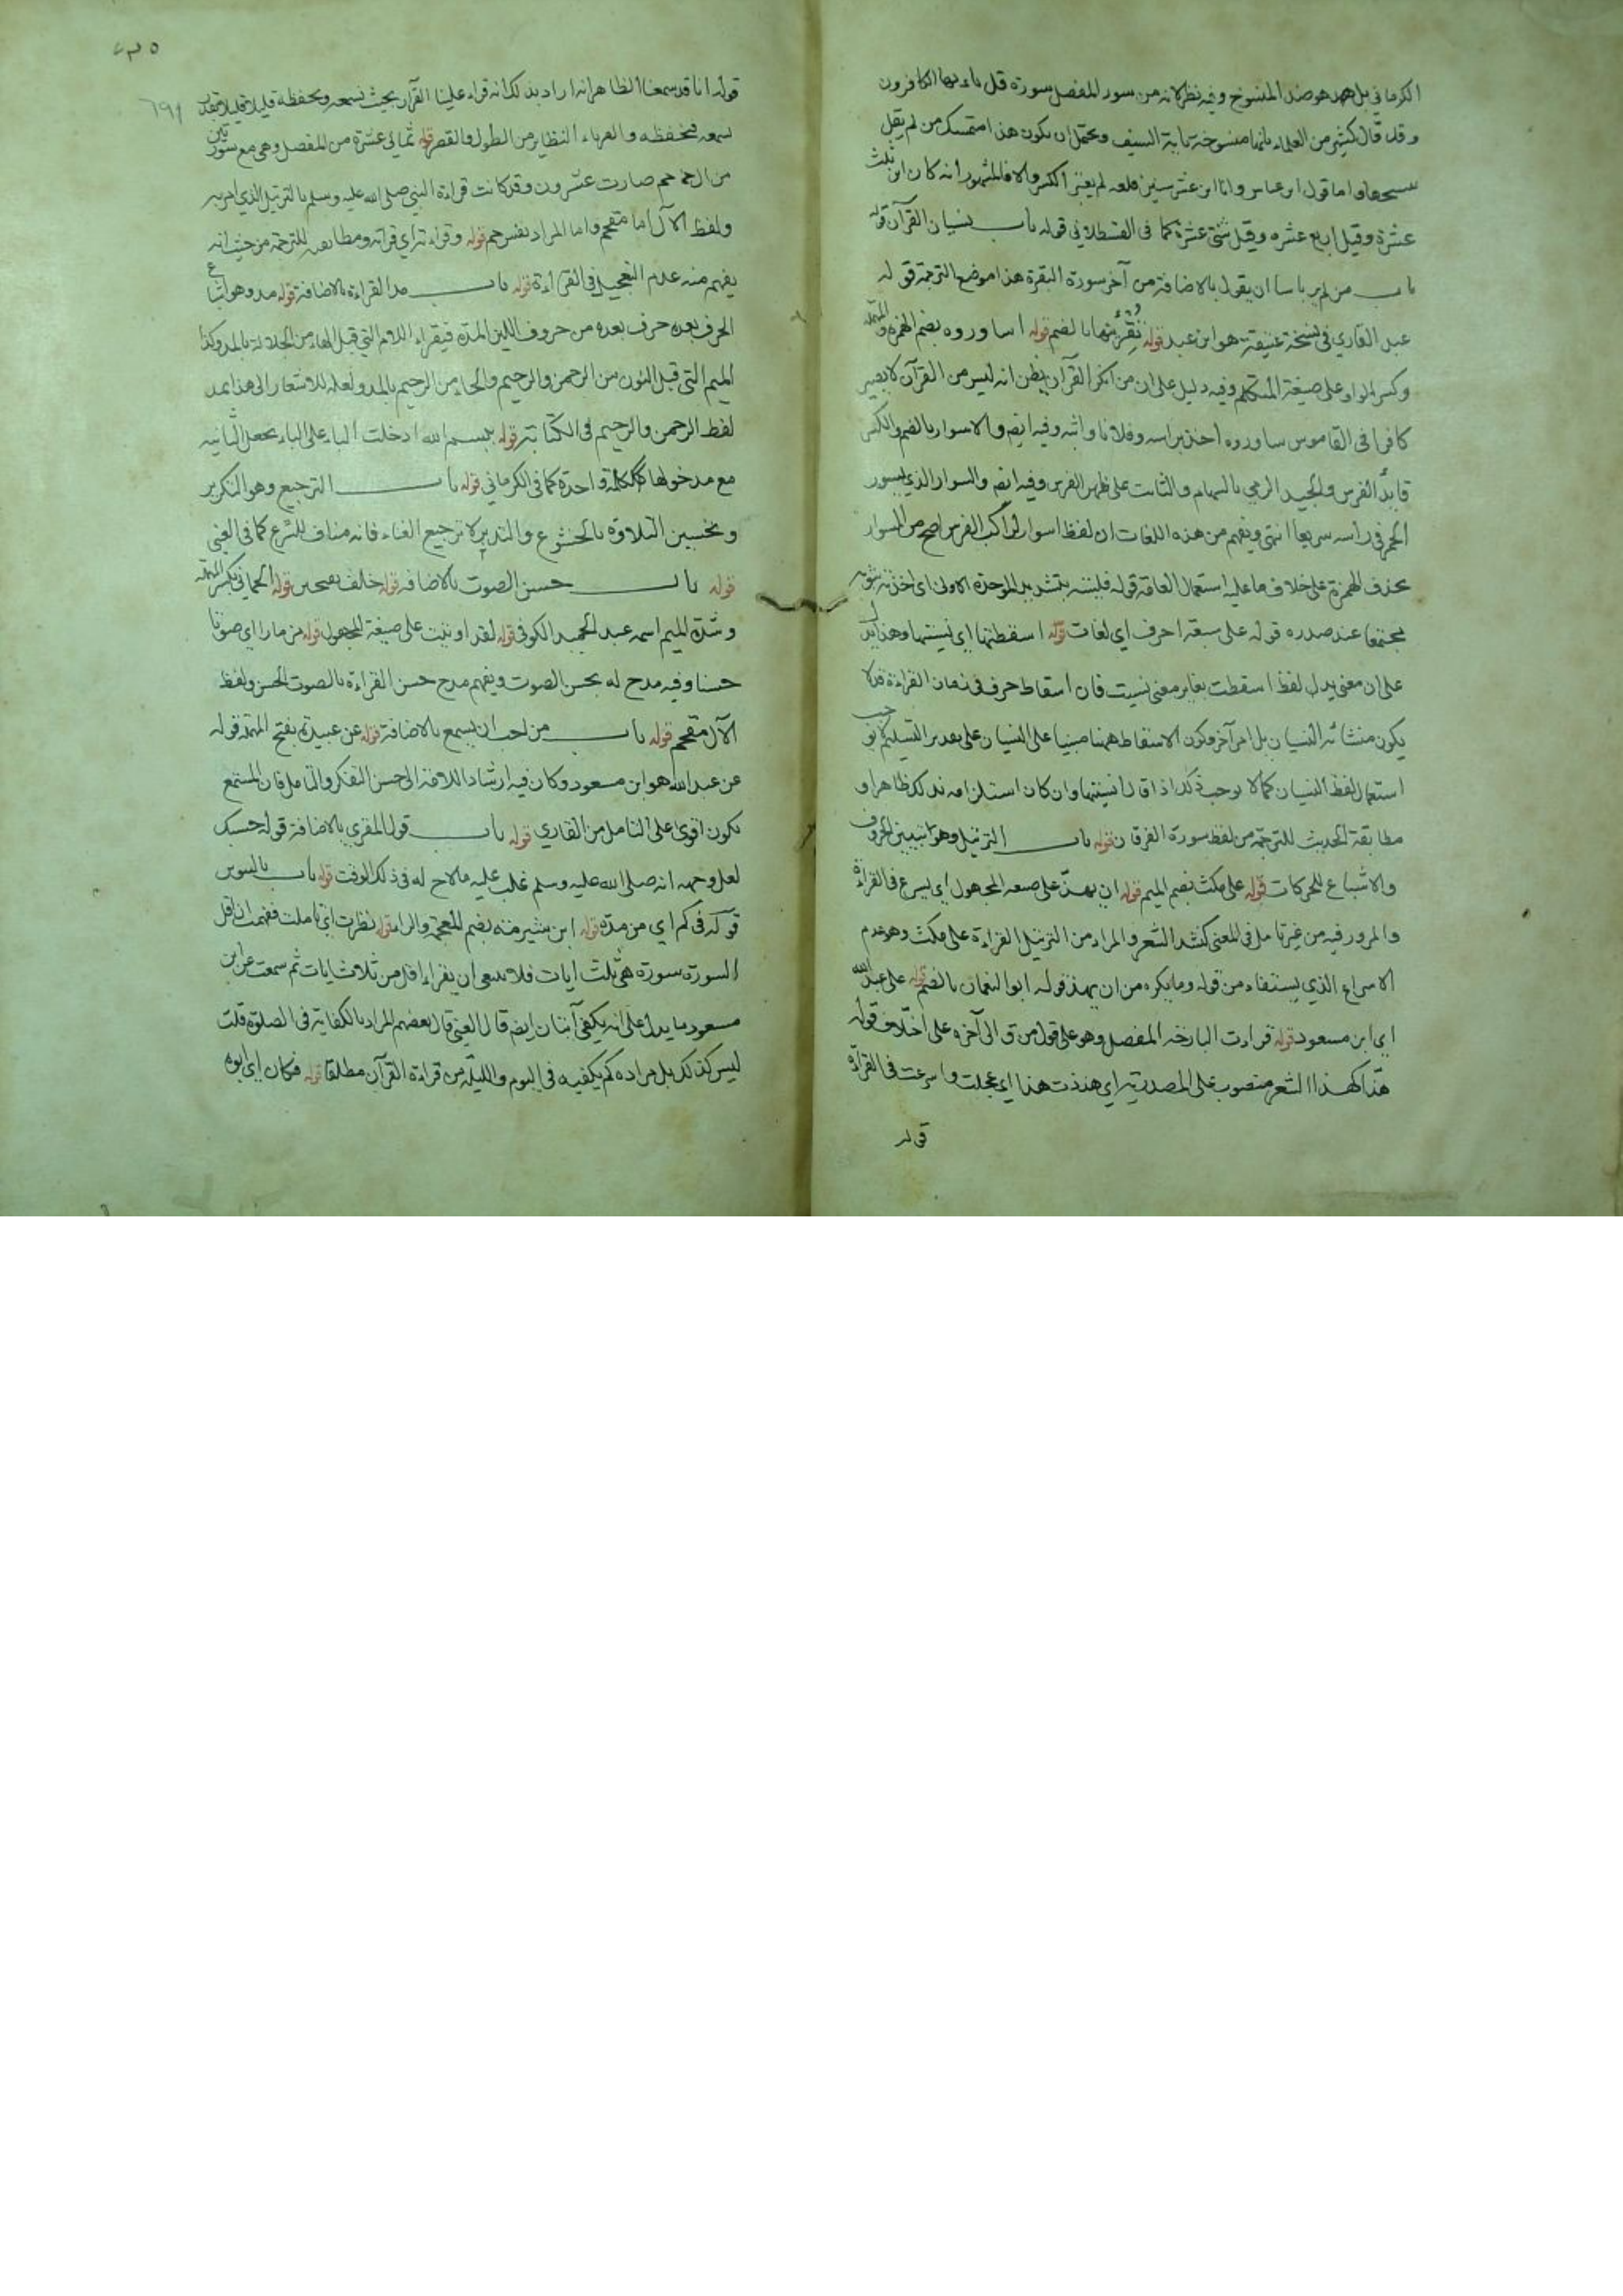 الكرماني بل هو ضد المنسوخ وفيه نظر لانه من سور المفصل سورة قل يا ءيها الكافرون
وقد قال كثير من العلماء بانها منسوخة باية السيف ويحتمل ان يكون هذا متمسك من لم يقل
واما قول ابن عباس وانا ابن عشر سنين فلعله لم يعتبر الكسر والا فالمشهور انه كان ابن ثلث
عشرة وقيل اربع عشره وقيل ثنتي عشرة كما في القسطلاني قوله باب نسيان القرآن قوله
باب من لم ير باسا ان يقول بالاضافة من آخر سورة البقرة هذا موضع الترجمة قوله
عبد القاري في نسخة عتيقة هو ابن عبد قوله بالضم قوله اساوروه بضم الهمزة والمهملة
وكسر الواو على صيغة المتكلم وفيه دليل على ان من انكر القرآن يظن انه ليس من القرآن لا يصير
كافرا في القاموس ساوروه اخذ براسه وفلانا واثبه وفيه ايضا والاسوار بالضم والكسر
قايد الفرس والجيد الرمي بالسهام والثابت على ظهر الفرس وفيه ايضا والسوار الذي يسور
الخمر في راسه سريعا انتهى ويفهم من هذه اللغات ان لفظ اسوار لراكب الفرس اصح من السوار
بحذف الهمزة على خلاف ما عليه استعمال العامة قوله فلببته بتشديد الموحدة الاولى اي اخذته بثوبه
مجتمعا عند صدره قوله على سبعة احرف اي لغات قوله اسقطتها اي نسيتها وهذا يدل
على ان معنى يدل لفظ اسقطت يغاير معنى نسيت فان اسقاط حرف في زمان القراءة قد لا
يكون منشائه النسيان بل امر آخر فيكون الاسقاط ههنا مبنيا على النسيان على تقدير التسليم لا يوجب
استعمال لفظ النسيان كما لا يوجب ذلك اذا قال انسيتها وان كان استلزامه لذلك ظاهرا و
مطابقة الحديث للترجمة من لفظ سورة الفرقان قوله باب الترتيل وهو تبيين الحروف
والاشباع للحركات قوله على مكث بضم الميم قوله ان يهذ على صيغة المجهول اي يسرع في القراءة
والمرور فيه من غير تامل في المعنى كنشد الشعر والمراد من الترتيل القراءة على مكث وهو عدم
الاسراع الذي يستفاد من قوله وما يكره من ان يهذ قوله ابو النعمان بالضم قوله على عبد الله
اي ابن مسعود قوله قراءت البارحة المفصل وهو على قول من ق الى آخره على اختلاف قوله
هذا كهذا الشعر منصوب على المصدرية اي هذذت هذا اي عجلت واسرعت في القراءة
قوله
٦٩١
قوله انا قد سمعنا الظاهر انه اراد بذلك انه قراء علينا القرآن بحيث نسمعه ونحفظه قليلا قليلا بقدر
نسمعه فنحفظه والقرناء النظاير من الطول والقصر قوله ثماني عشرة من المفصل وهي مع سورتين
من ال حم صارت عشرون وقد كانت قراءة النبي صلى الله عليه وسلم بالترتيل الذي امر به
ولفظ الآل اما مقحم واما المراد نفس حم قوله وقراءته اي قرآنه ومطابقته للترجمة من حيث انه
يفهم منه عدم التعجيل في القراءة قوله باب مد القراءة بالاضافة قوله مد وهو اشباع
الحرف بعده حرف بعده من حروف اللين المدة فيقراء اللام التي قبل الهاء من الجلالة بالمد وكذا
الميم التي قبل النون من الرحمن والرحيم والحاء من الرحيم بالمد ولعله للاشعار الى هذا يمد
لفظ الرحمن والرحيم في الكتابة قوله ببسم الله ادخلت الباء على الباء بجعل الثانية
مع مدخولها كالكلمة واحدة كما في الكرماني قوله باب الترجيع وهو التكرير
وتحسين التلاوة بالخشوع والتدبر لا ترجيع الغناء فانه مناف للشرع كما في العيني
قوله باب حسن الصوت بالاضافة قوله خلف بفتحتين قوله الحماني بكسر المهملة
وشدة الميم اسمه عبد الحميد الكوفي قوله لقد اوتيت على صيغة المجهول قوله مزمارا اي صوتا
حسنا وفيه مدح له بحسن الصوت ويفهم مدح حسن القراءة بالصوت الحسن ولفظ
الآل مقحم قوله باب من احب ان يسمع بالاضافة قوله عن عبيدة بفتح المهملة قوله
عن عبد الله هو ابن مسعود وكان فيه ارشادا للامة الى حسن التفكر والتامل فان المستمع
يكون اقوى على التامل من القاري قوله باب قول المقري بالاضافة قوله حسبك
لعل وجهه انه صلى الله عليه وسلم غلب عليه ما لاح له في ذلك الوقت قوله باب بالتنوين
قوله في كم اي من مدة قوله ابن شبرمة بضم المعجمة والراء قوله نظرت اي تاملت ففهمت ان اقل
السورة سورة هي ثلث ايات فلا ينبغي ان يقراء اقل من ثلاث ايات ثم سمعت عن ابن
مسعود ما يدل على انه يكفي آيتان ايضا قال العيني قال بعضهم المراد بالكفاية في الصلوة قلت
ليس كذلك بل مراده كم يكفيه في اليوم والليلة من قراءة القرآن مطلقا قوله فكان اي ابوه